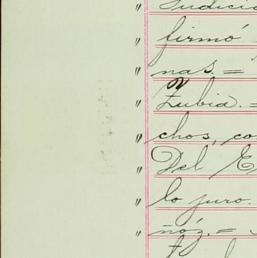 Judicia
" firmó
" nas. =
" Zubia. =
" chos, co
" Del E
" lo juro.
" ñóz. =